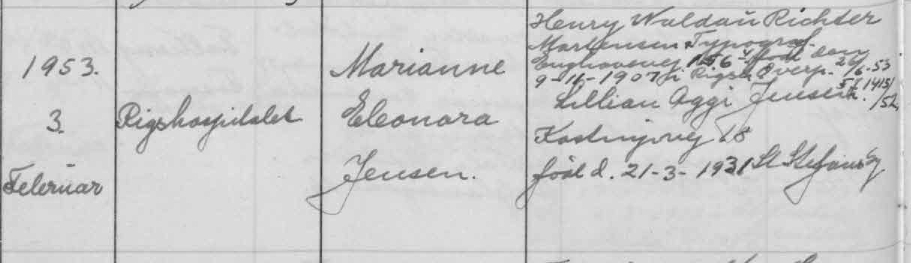 1953.
3.
Februar
Rigshospitalet
Marianne
Eleonora
Jensen.
Henry Waldau Richter
Mortensen Typograf
Enghavevej
9-11-1907 i Rigsh. Overp. 26/6-53
Lillian Aggi Jensen
Kastrupvej 18
født d. 21-3-1931 St Stefans